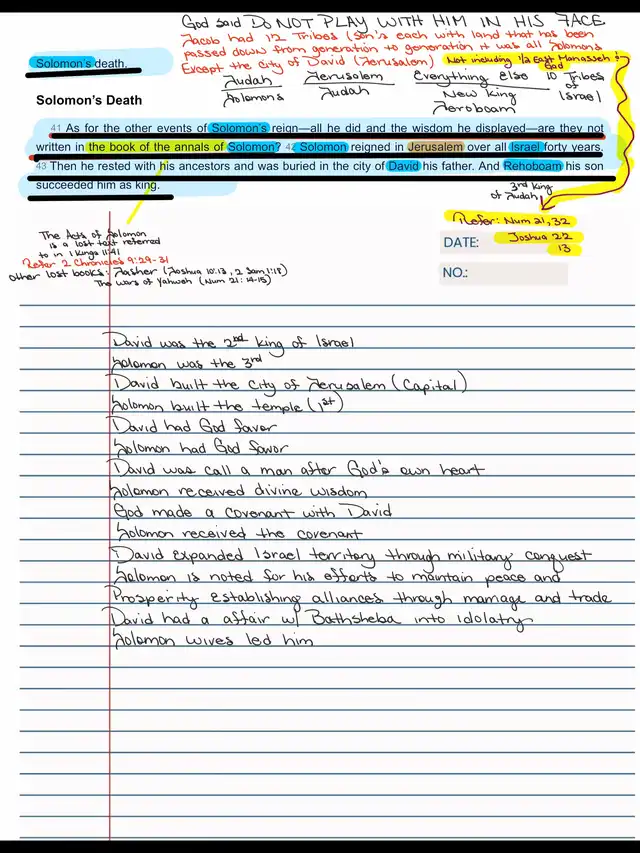 God said DO NOT PLAY WITH HIM IN HIS FACE
Jacob had 12 Tribes (son's each with land that has been
passed down from generation to generation it was all Solomons
Except the city of David (Jerusalem) Not including 1/2 East Manasseh &
Gad
Solomon's death.
Judah Jerusalem Everything Else 10 Tribes
Solomons Judah New King of
Jeroboam Israel
Solomon's Death
41 As for the other events of Solomon's reign—all he did and the wisdom he displayed—are they not
written in the book of the annals of Solomon? 42 Solomon reigned in Jerusalem over all Israel forty years.
43 Then he rested with his ancestors and was buried in the city of David his father. And Rehoboam his son
succeeded him as king.
3rd King
of Judah
Refer: Num 21, 32
DATE: Joshua 22
13
NO.:
The Acts of Solomon
is a lost text referred
to in 1 Kings 11:41
Refer 2 Chronicles 9:29-31
other lost books: Jasher (Joshua 10:13, 2 Sam 1:18)
The wars of Yahweh (Num 21:14-15)
David was the 2nd king of Israel
Solomon was the 3rd
David built the City of Jerusalem (Capital)
Solomon built the temple (1st)
David had God favor
Solomon had God favor
David was call a man after God's own heart
Solomon received divine wisdom
God made a covenant with David
Solomon received the covenant
David expanded Israel territory through military conquest
Solomon is noted for his efforts to maintain peace and
Prosperity establishing alliances through marriage and trade
David had a affair w/ Bathsheba into idolatry
Solomon wives led him